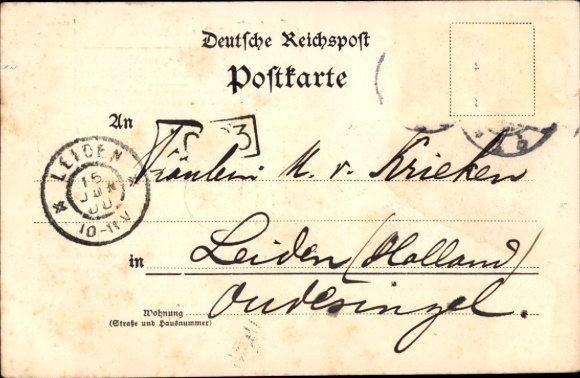 Deutsche Reichspost
Postkarte
An
3
LEIDEN
15
10-11V
Fräulein M. v. Krieken
in Leiden (Holland)
Oudesingel.
Wohnung
(Straße und Hausnummer)